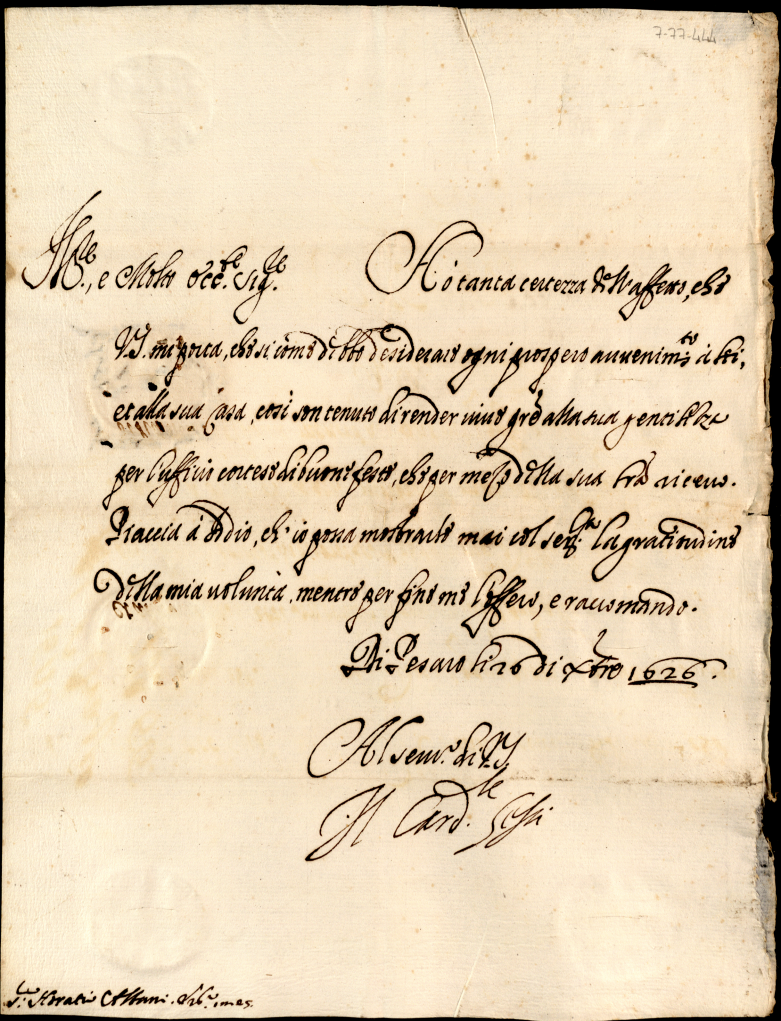 7-77-444
Ill.re, e Molto Ecc.te Sig.re Hò tanta certezza dell'affetto, che
V.S. mi porta, che si come debbo desiderare ogni prospero auuenim.to à lei,
et alla sua Casa, così son tenuto di render uiue gr̃e alla sua gentilezza
per l'uffitio cortese di buone feste, che per mezo della sua lr̃a riceuo.
Piaccia à Dio, ch'io possa mostrarle mai col seru.o la gratitudine
della mia uolontà, mentre per fine me l'offero, e raccomando.
Di Pesaro li 26 di Xbre 1626.
Al seru.o di V.S.
Il Card.le
S.r Horatio Albani.